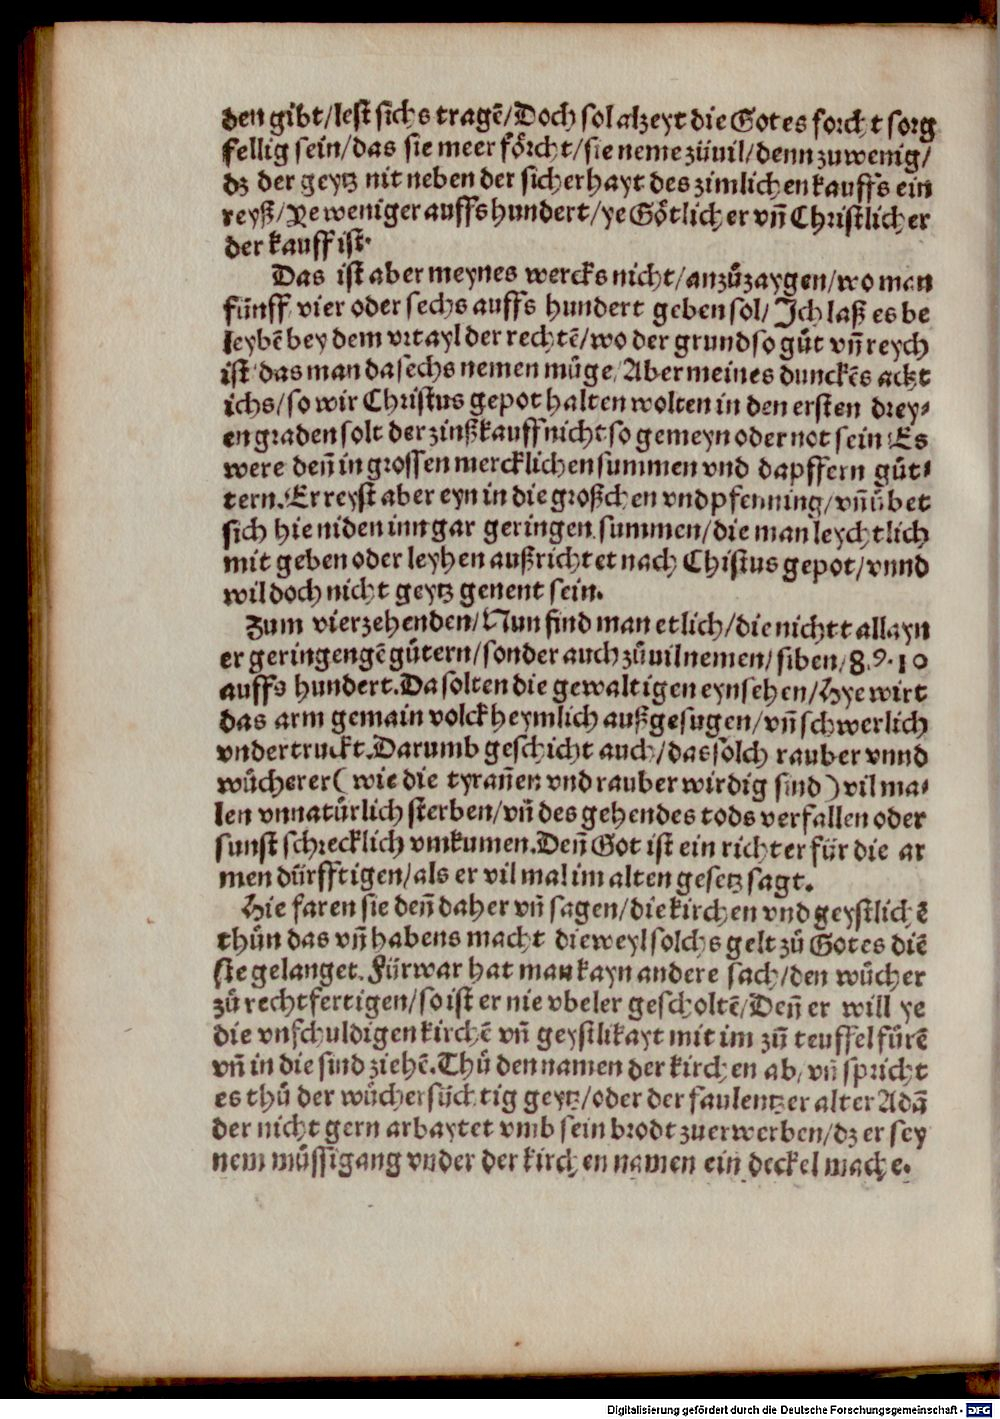 den gibt/lest sichs tragē/Doch sol alzeyt die Gotes forcht sorg
fellig sein/das sie meer förcht/sie neme zůuil/denn zuwenig/
dz der geytz nit neben der sicherhayt des zimlichen kauffs ein
reyß/Ye weniger auffs hundert/ye Götlicher vñ Christlicher
der kauff ist.
Das ist aber meynes wercks nicht/anzůzaygen/wo man
fünff vier oder sechs auffs hundert geben sol/Jch laß es be
leybē bey dem vrtayl der rechtē/wo der grund so gůt vñ reych
ist das man da sechs nemen müge/Aber meines dunckēs achzt
ichs/so wir Christus gepot halten wolten in den ersten drey⸗
en graden solt der zinßkauff nicht so gemeyn oder not sein/Es
were deñ in grossen mercklichen summen vnd dapffern güt⸗
tern.Er reyst aber eyn in die großchen vnd pfenning/vñ übet
sich hieniden inn gar geringen summen/die man leychtlich
mit geben oder leyhen außrichtet nach Chistus gepot/vnnd
wil doch nicht geytz genent sein.
Zum vierzehenden/Nun find man etlich/die nichtt allayn
er geringengē gütern/sonder auch zůuil nemen/siben/8.9.10
auffs hundert.Da solten die gewaltigen eynsehen/Hye wirt
das arm gemain volck heymlich außgesugen/vñ schwerlich
vndertruckt.Darumb geschicht auch/das solch rauber vnnd
wůcherer(wie die tyrañen vnd rauber wirdig sind)vil ma⸗
len vnnatürlich sterben/vñ des gehendes tods verfallen oder
sunst schrecklich vmkumen.Deñ Got ist ein richter für die ar
men dürfftigen/als er vil mal im alten gesetz sagt.
Hie faren sie deñ daher vñ sagen/die kirchen vnd geystlichē
thün das vñ habens macht dieweyl solchs gelt zů Gotes diē
ste gelanget.Fürwar hat man kayn andere sach/den wůcher
zů rechtfertigen/so ist er nie vbeler gescholtē/Deñ er will ye
die vnschuldigen kirchē vñ geystlikayt mit im zů teuffel fürē
vñ in die sind ziehē.Thů den namen der kirchen ab/vñ spricht
es thů der wůchersüchtig geytz/oder der faulentzer alter Adā
der nicht gern arbaytet vmb sein brodt zuerwerben/dz er sey
nem můssigang vnder der kirchen namen ein deckel mache.
Digitalisierung gefördert durch die Deutsche Forschungsgemeinschaft - DFG